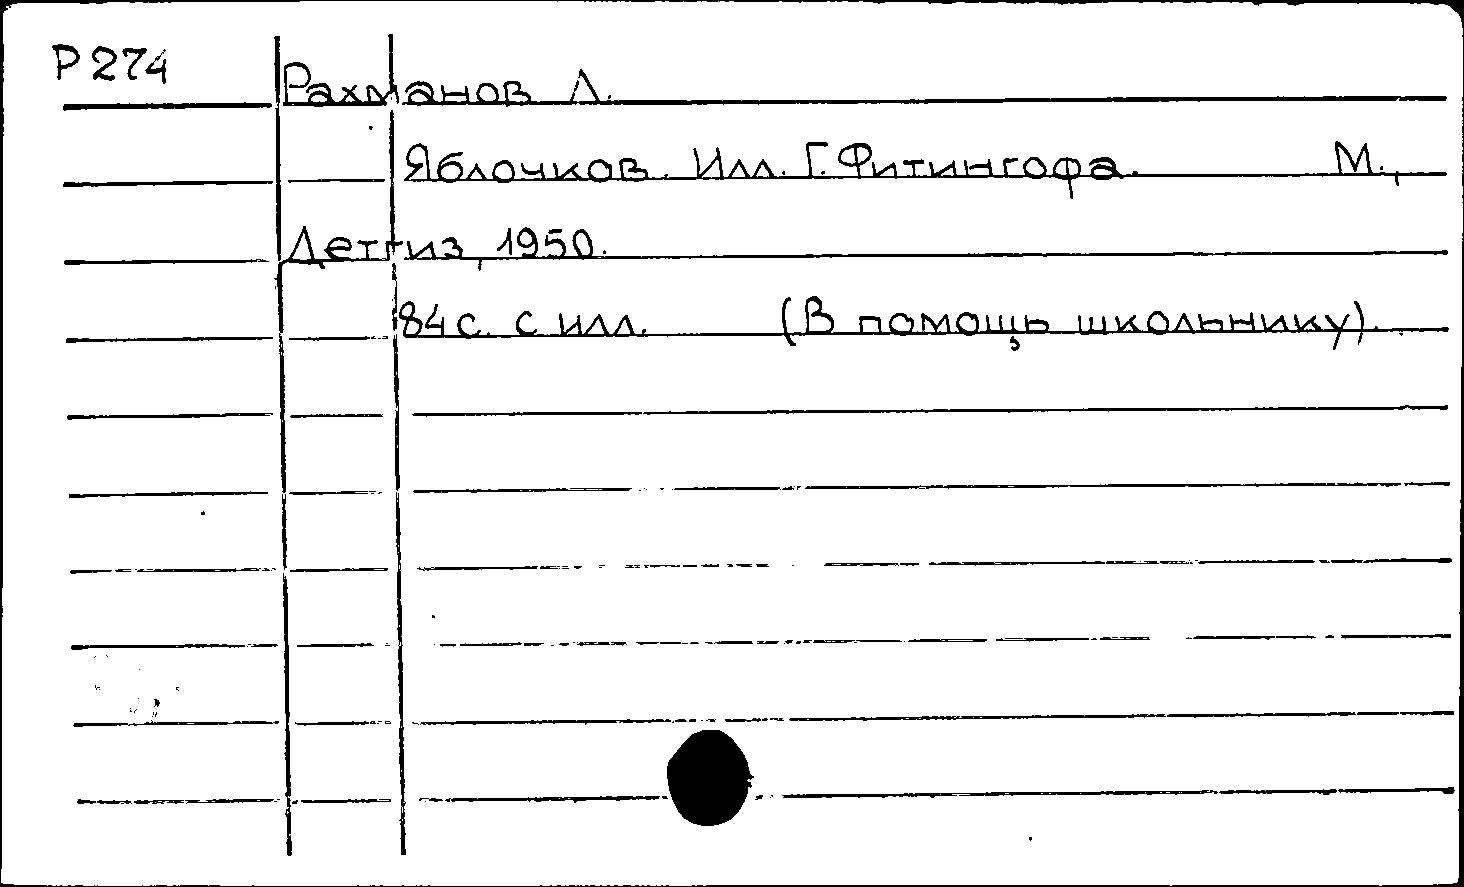 Р274
Рахманов Л.
Яблочков. Илл. Г. Фитингофа. М.,
Детгиз, 1950.
84 с. с илл. (В помощь школьнику).